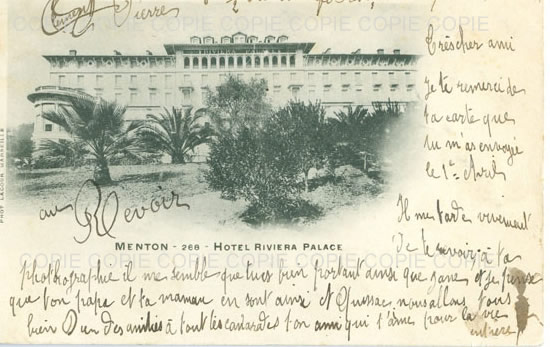 Clément Pierre
COPIE COPIE COPIE COPIE COPIE COPIE
RIVIERA PALACE
Très cher ami
Je te remerci de
ta carte que
tu m'as envoyié
le 1er Avril
Il me tarde vivement
De te revoir à ta
au Revoir
PHOT. LACOUR, MARSEILLE
MENTON - 268 - HOTEL RIVIERA PALACE
photographie il me semble que tu es bien portant ainsi que et je pense
que ton papa et ta maman en sont ainsi et nous allons tous
bien Dien des amitiés à tout les camarades ton ami qui t'aime pour la vie
entière